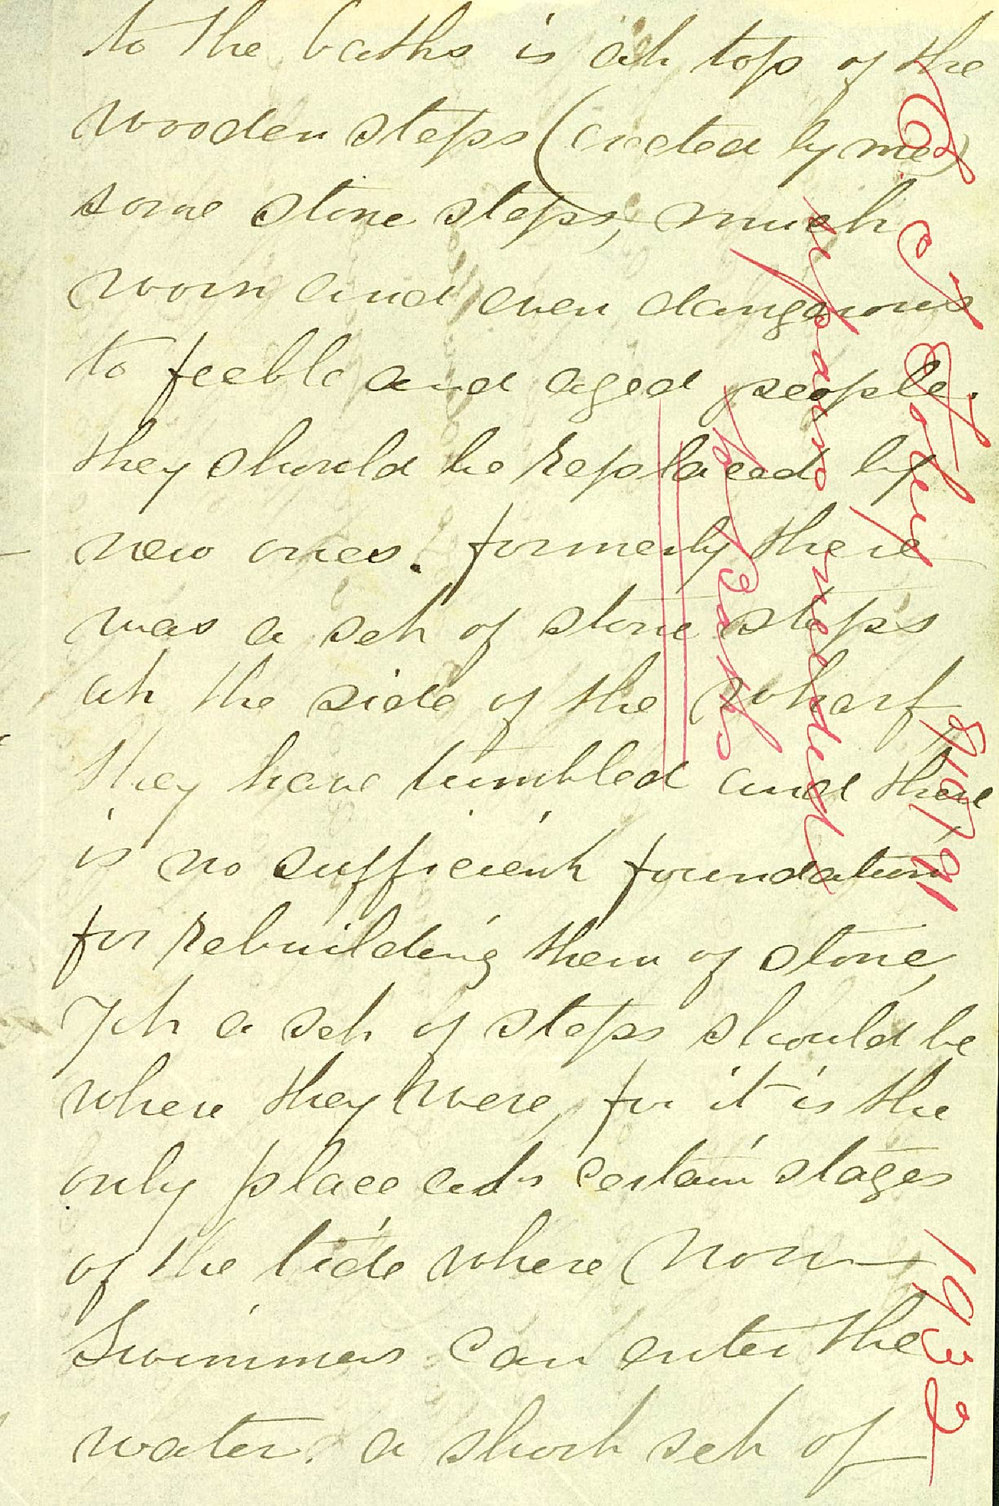 to the baths is at top of the
wooden steps (erected by me)
some stone steps, much
worn and even dangerous
to feeble and aged people.
they should be replaced by
new ones. formerly there
was a set of stone steps
at the side of the wharf
they have tumbled and there
is no sufficient foundation
for rebuilding them of stone,
Yet a set of steps should be
where they were, for it is the
only place at certain stages
of the tide where non-
swimmers can enter the
water. a short set of
repairs needed
to Baths
1932